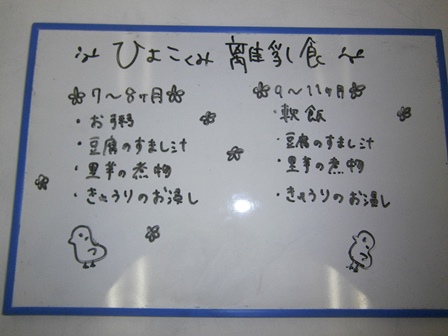 ひよこぐみ 離乳食
7〜8ヶ月
・お粥
・豆腐のすまし汁
・里芋の煮物
・きゅうりのお浸し
9〜11ヶ月
・軟飯
・豆腐のすまし汁
・里芋の煮物
・きゅうりのお浸し